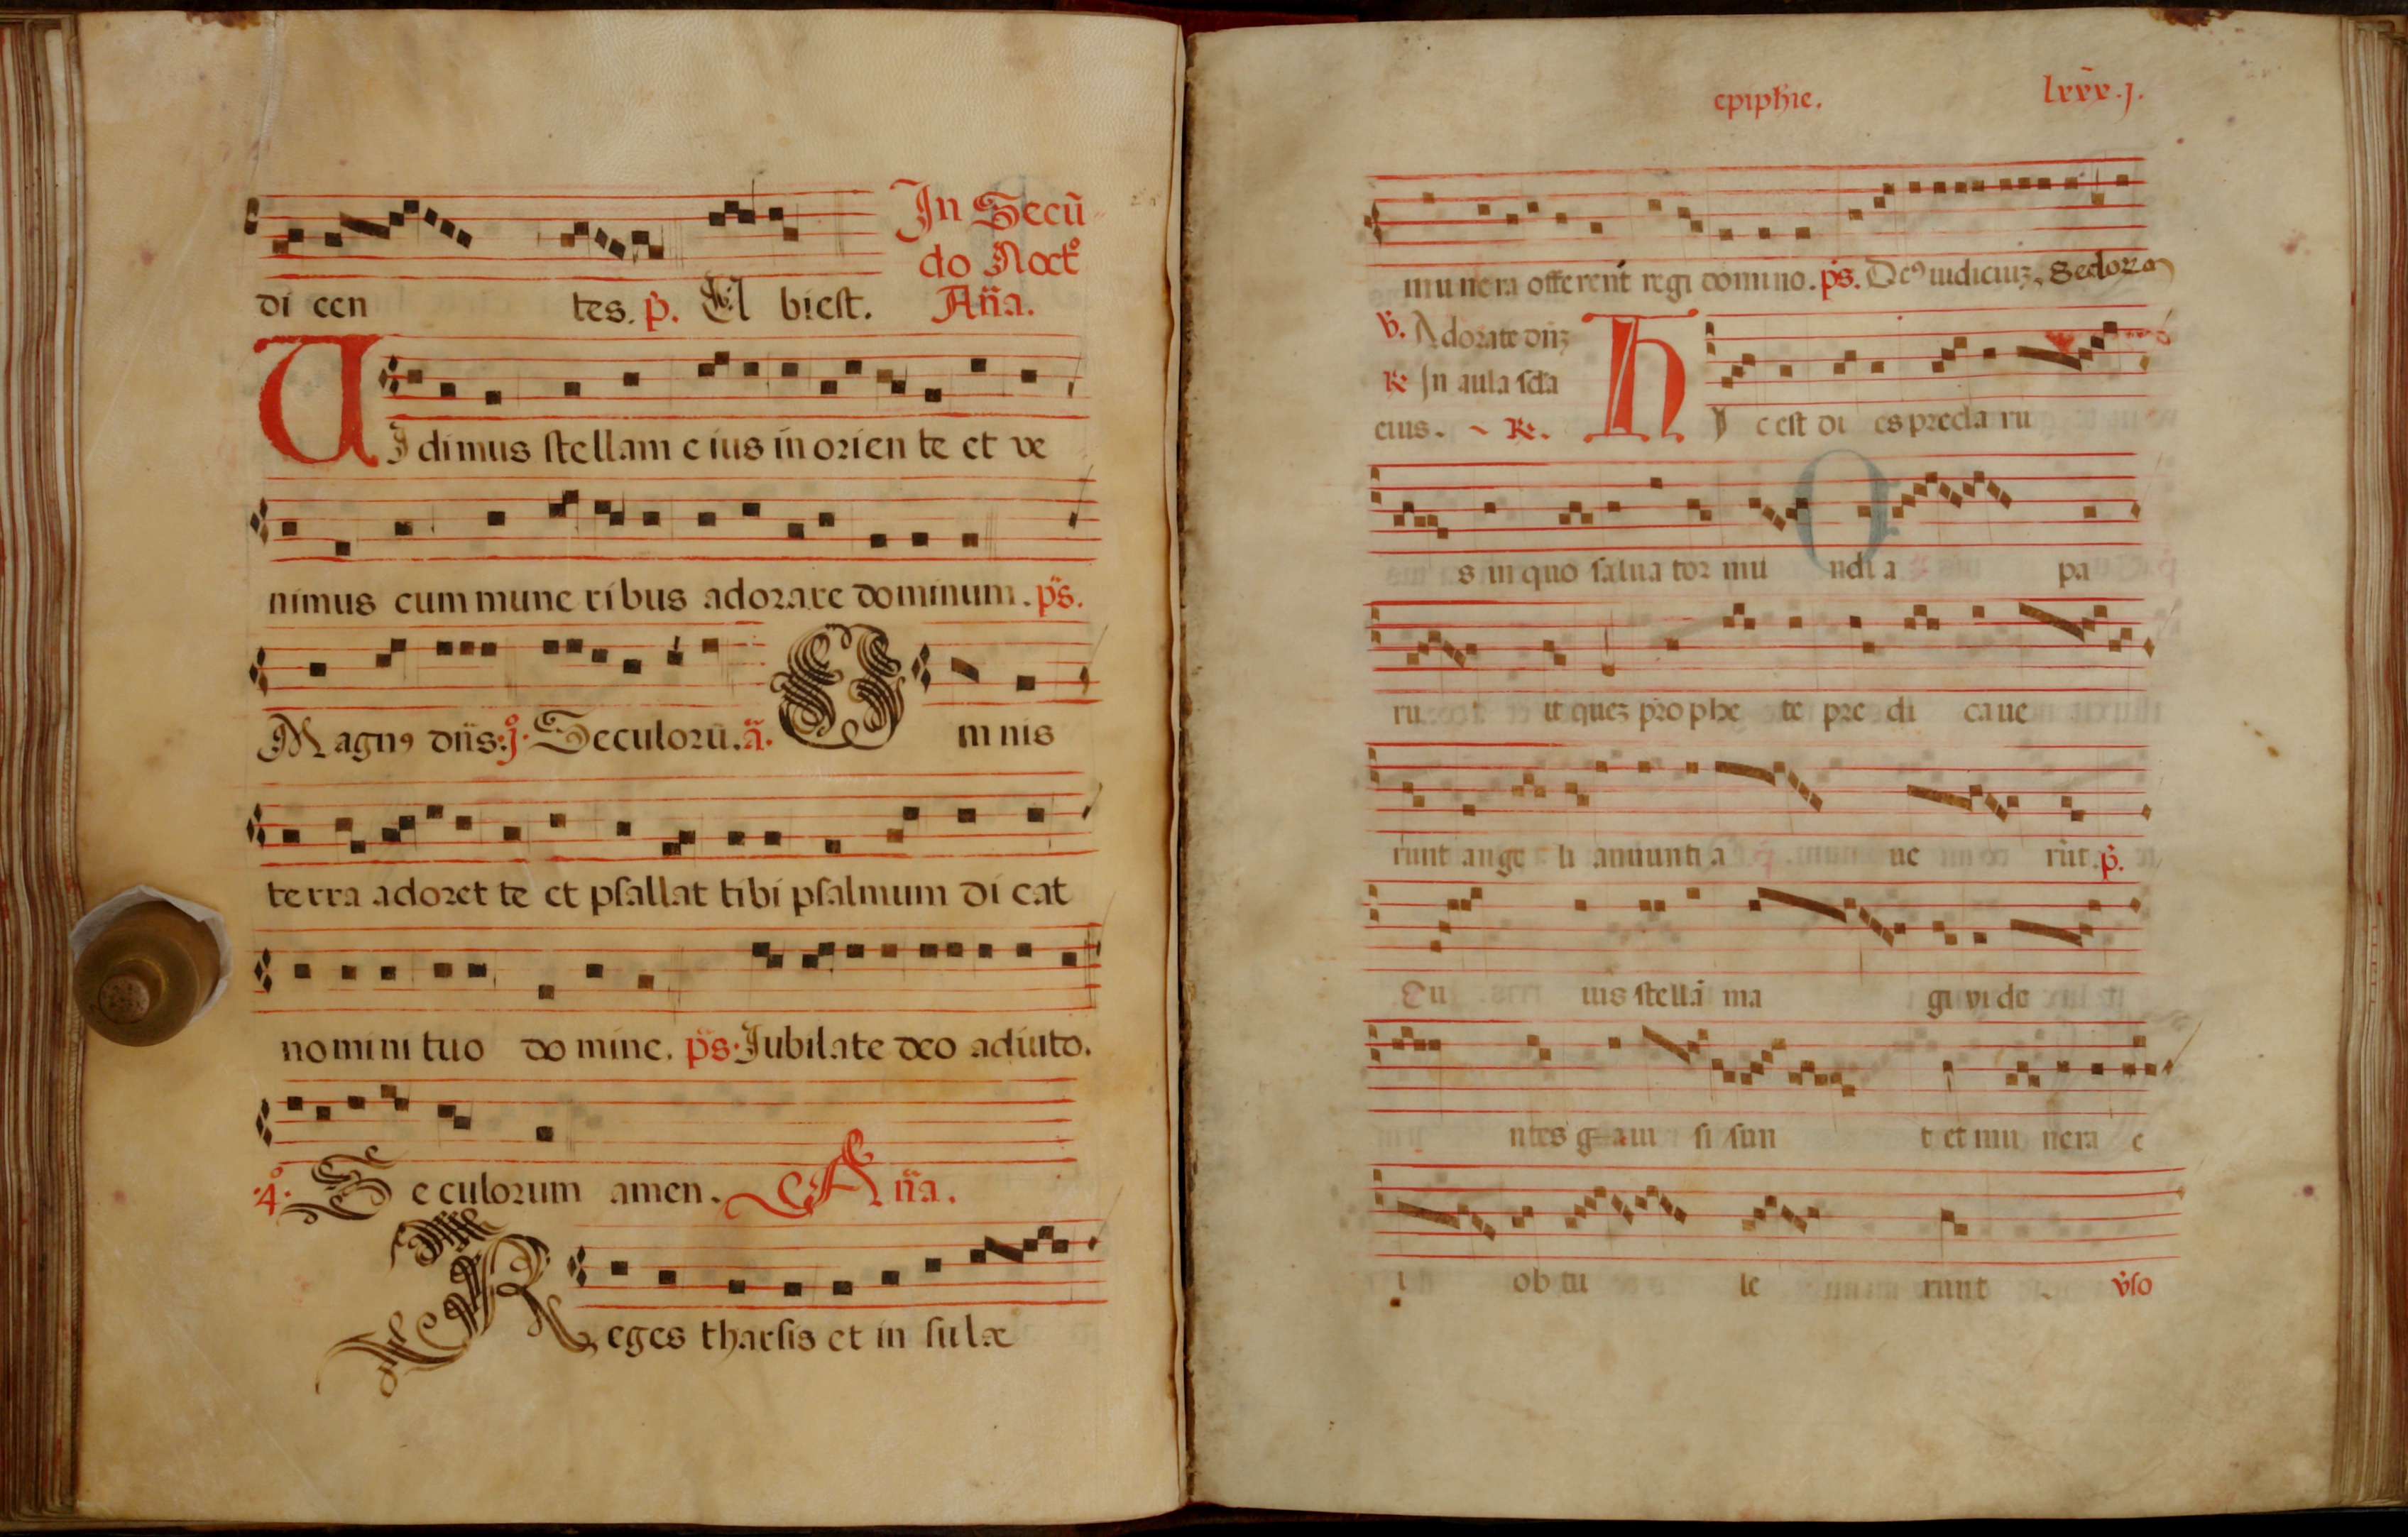 In Secũ
do Noct°
di cen tes. p̃. El biest. Añã.
VIdimus stellam eius in oriente et ve
nimus cum mune ribus adorare dominum. ps̃.
Magnꝯ dñs. j° Seculorũ. ã. Omnis
terra adoret te et psallat tibi psalmum di cat
nomini tuo do mine. ps̃. Iubilate deo adiuto.
4° Seculorum amen. Añã.
Reges tharsis et in sulæ
epiphie. lxxx.j.
munera offerent regi domino. ps̃. Deꝯ iudiciuʒ.
℣. Adorate dñʒ
℟ In aula scta
eius. ~ ℟. Hic est di es precla ru
s in quo salua tor mu ndi a pa
ru it queʒ pro phe te pre di caue
runt ange li annunti a ue rũt. p̃.
Cu ius stellã ma gi vi de
ntes g aui si sun t et mu nera e
i ob tu le runt ṽso